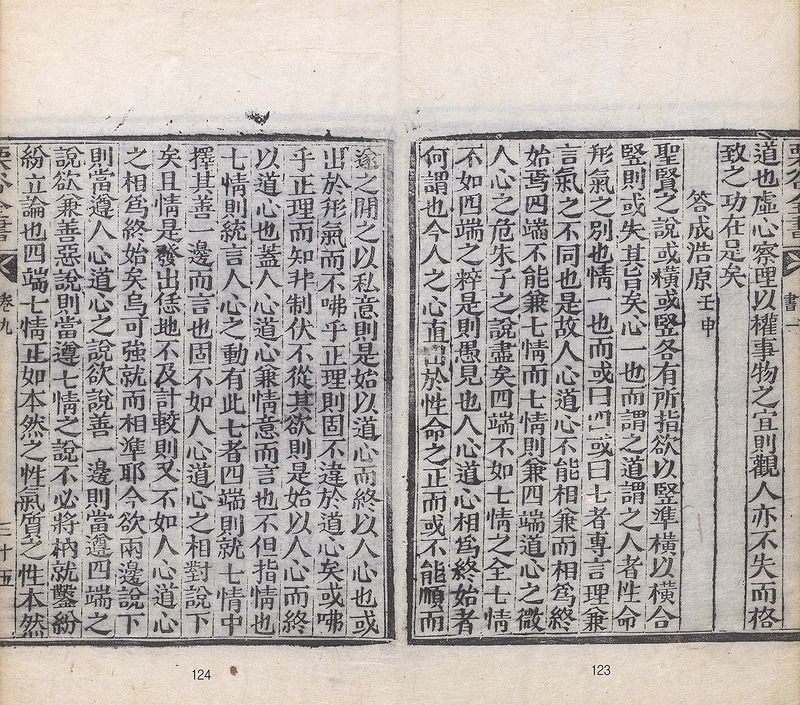 道也虛心察理以權事物之宜則觀人亦不失而格
致之功在是矣
答成浩原壬申
聖賢之說或橫或竪各有所指欲以竪準橫以橫合
竪則或失其旨矣心一也而謂之道謂之人者性命
形氣之別也情一也而或曰四或曰七者專言理兼
言氣之不同也是故人心道心不能相兼而相爲終
始焉四端不能兼七情而七情則兼四端道心之微
人心之危朱子之說盡矣四端不如七情之全七情
不如四端之粹是則愚見也人心道心相爲終始者
何謂也今人之心直出於性命之正而或不能順而
書一
遂之閒之以私意則是始以道心而終以人心也或
出於形氣而不咈乎正理則固不違於道心矣或咈
乎正理而知非制伏不從其欲則是始以人心而終
以道心也蓋人心道心兼情意而言也不但指情也
七情則統言人心之動有此七者四端則就七情中
擇其善一邊而言也固不如人心道心之相對說下
矣且情是發出恁地不及計較則又不如人心道心
之相爲終始矣烏可強就而相準耶今欲兩邊說下
則當遵人心道心之說欲說善一邊則當遵四端之
說欲兼善惡說則當遵七情之說不必將枘就鑿紛
紛立論也四端七情正如本然之性氣質之性本然
栗谷全書
卷九
三十五
124
123